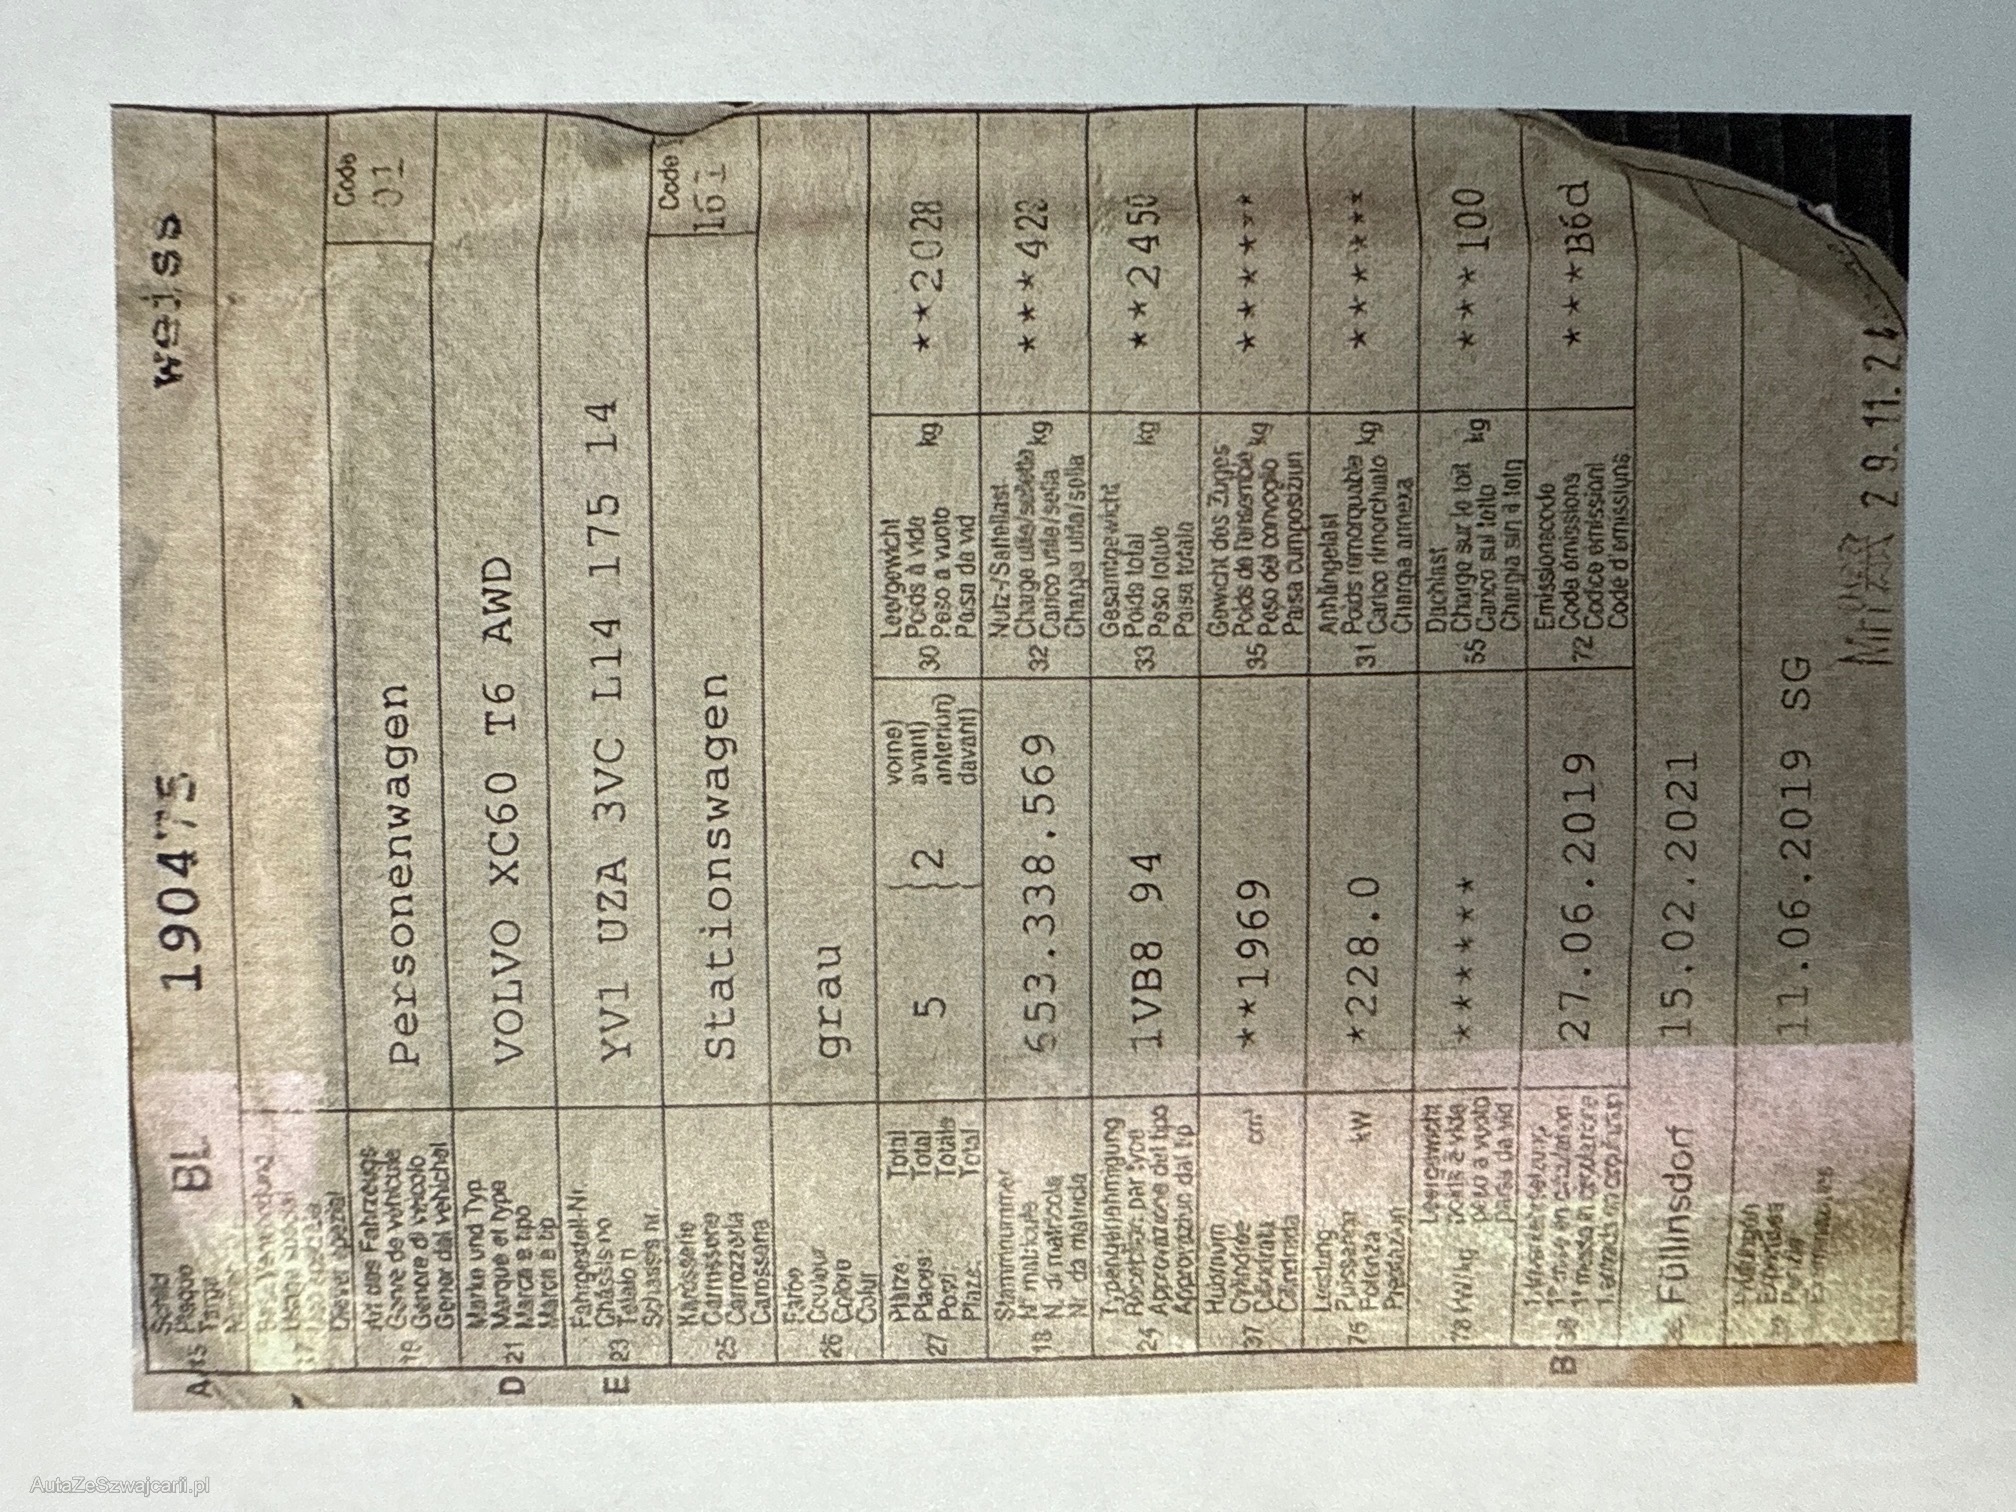 Schild
Plaque
Targa
A 15 BL 190475 weiss
Art des Fahrzeugs
Genre de véhicule
Genere di veicolo
Gener dal vehichel
19 Personenwagen Code 01
Marke und Typ
Marque et type
Marca e tipo
Marca e tip
D 21 VOLVO XC60 T6 AWD
Fahrgestell-Nr.
Châssis no
Telaio n
Schassis nr.
E 23 YV1 UZA 3VC L14 175 14
Karosserie
Carrosserie
Carrozzeria
Carossaria
25 Stationswagen Code 161
Farbe
Couleur
Colore
Colur
26 grau
Plätze: Total
Places: Total
Posti: Totale
Plazs: Total
27 5 { 2 vorne)
avant)
anteriori)
davant)
Leergewicht
Poids à vide
30 Peso a vuoto kg **2028
Paisa da vid
Stammnummer
N° matricule
18 N. di matricola 653.338.569
Nr. da matricla
Nutz-/Sattellast
Charge utile/sellette
32 Carico utile/sella kg ***422
Chargia utila/sella
Typengenehmigung
Réception par type
24 Approvazione del tipo 1VB8 94
Approvaziun dal tip
Gesamtgewicht
33 Poids total kg **2450
Peso totale
Paisa totala
Hubraum cm³
37 Cylindrée **1969
Cilindrata
Cilindrada
Gewicht des Zuges
Poids de l'ensemble
35 Peso del convoglio kg ******
Paisa cumposiziun
Leistung kW
76 Puissance *228.0
Potenza
Prestaziun
Anhängelast
31 Poids remorquable kg ******
Carico rimorchiato
Chargia annexa
Leergewicht
78 kW/kg poids à vide ******
peso a vuoto
paisa da vid
Dachlast
55 Charge sur le toit kg ***100
Carico sul tetto
Chargia sin il tetg
B 36 27.06.2019
Emissionscode
72 Code émissions ***B6d
Codice emissioni
Code d'emissiuns
Füllinsdorf 15.02.2021
11.06.2019 SG
29.11.2
AutaZeSzwajcarii.pl